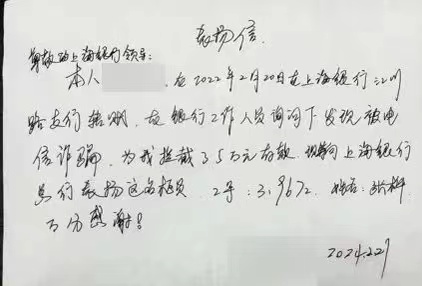 表扬信
尊敬的上海银行领导:
本人 在2022年2月20日在上海银行
路支行转账,被银行工作人员询问下发现被电
信诈骗,为我拦截了5万元存款,现向上海银行
总行表扬这名柜员,工号:3.9672. 姓名:
万分感谢!
2024.2.27